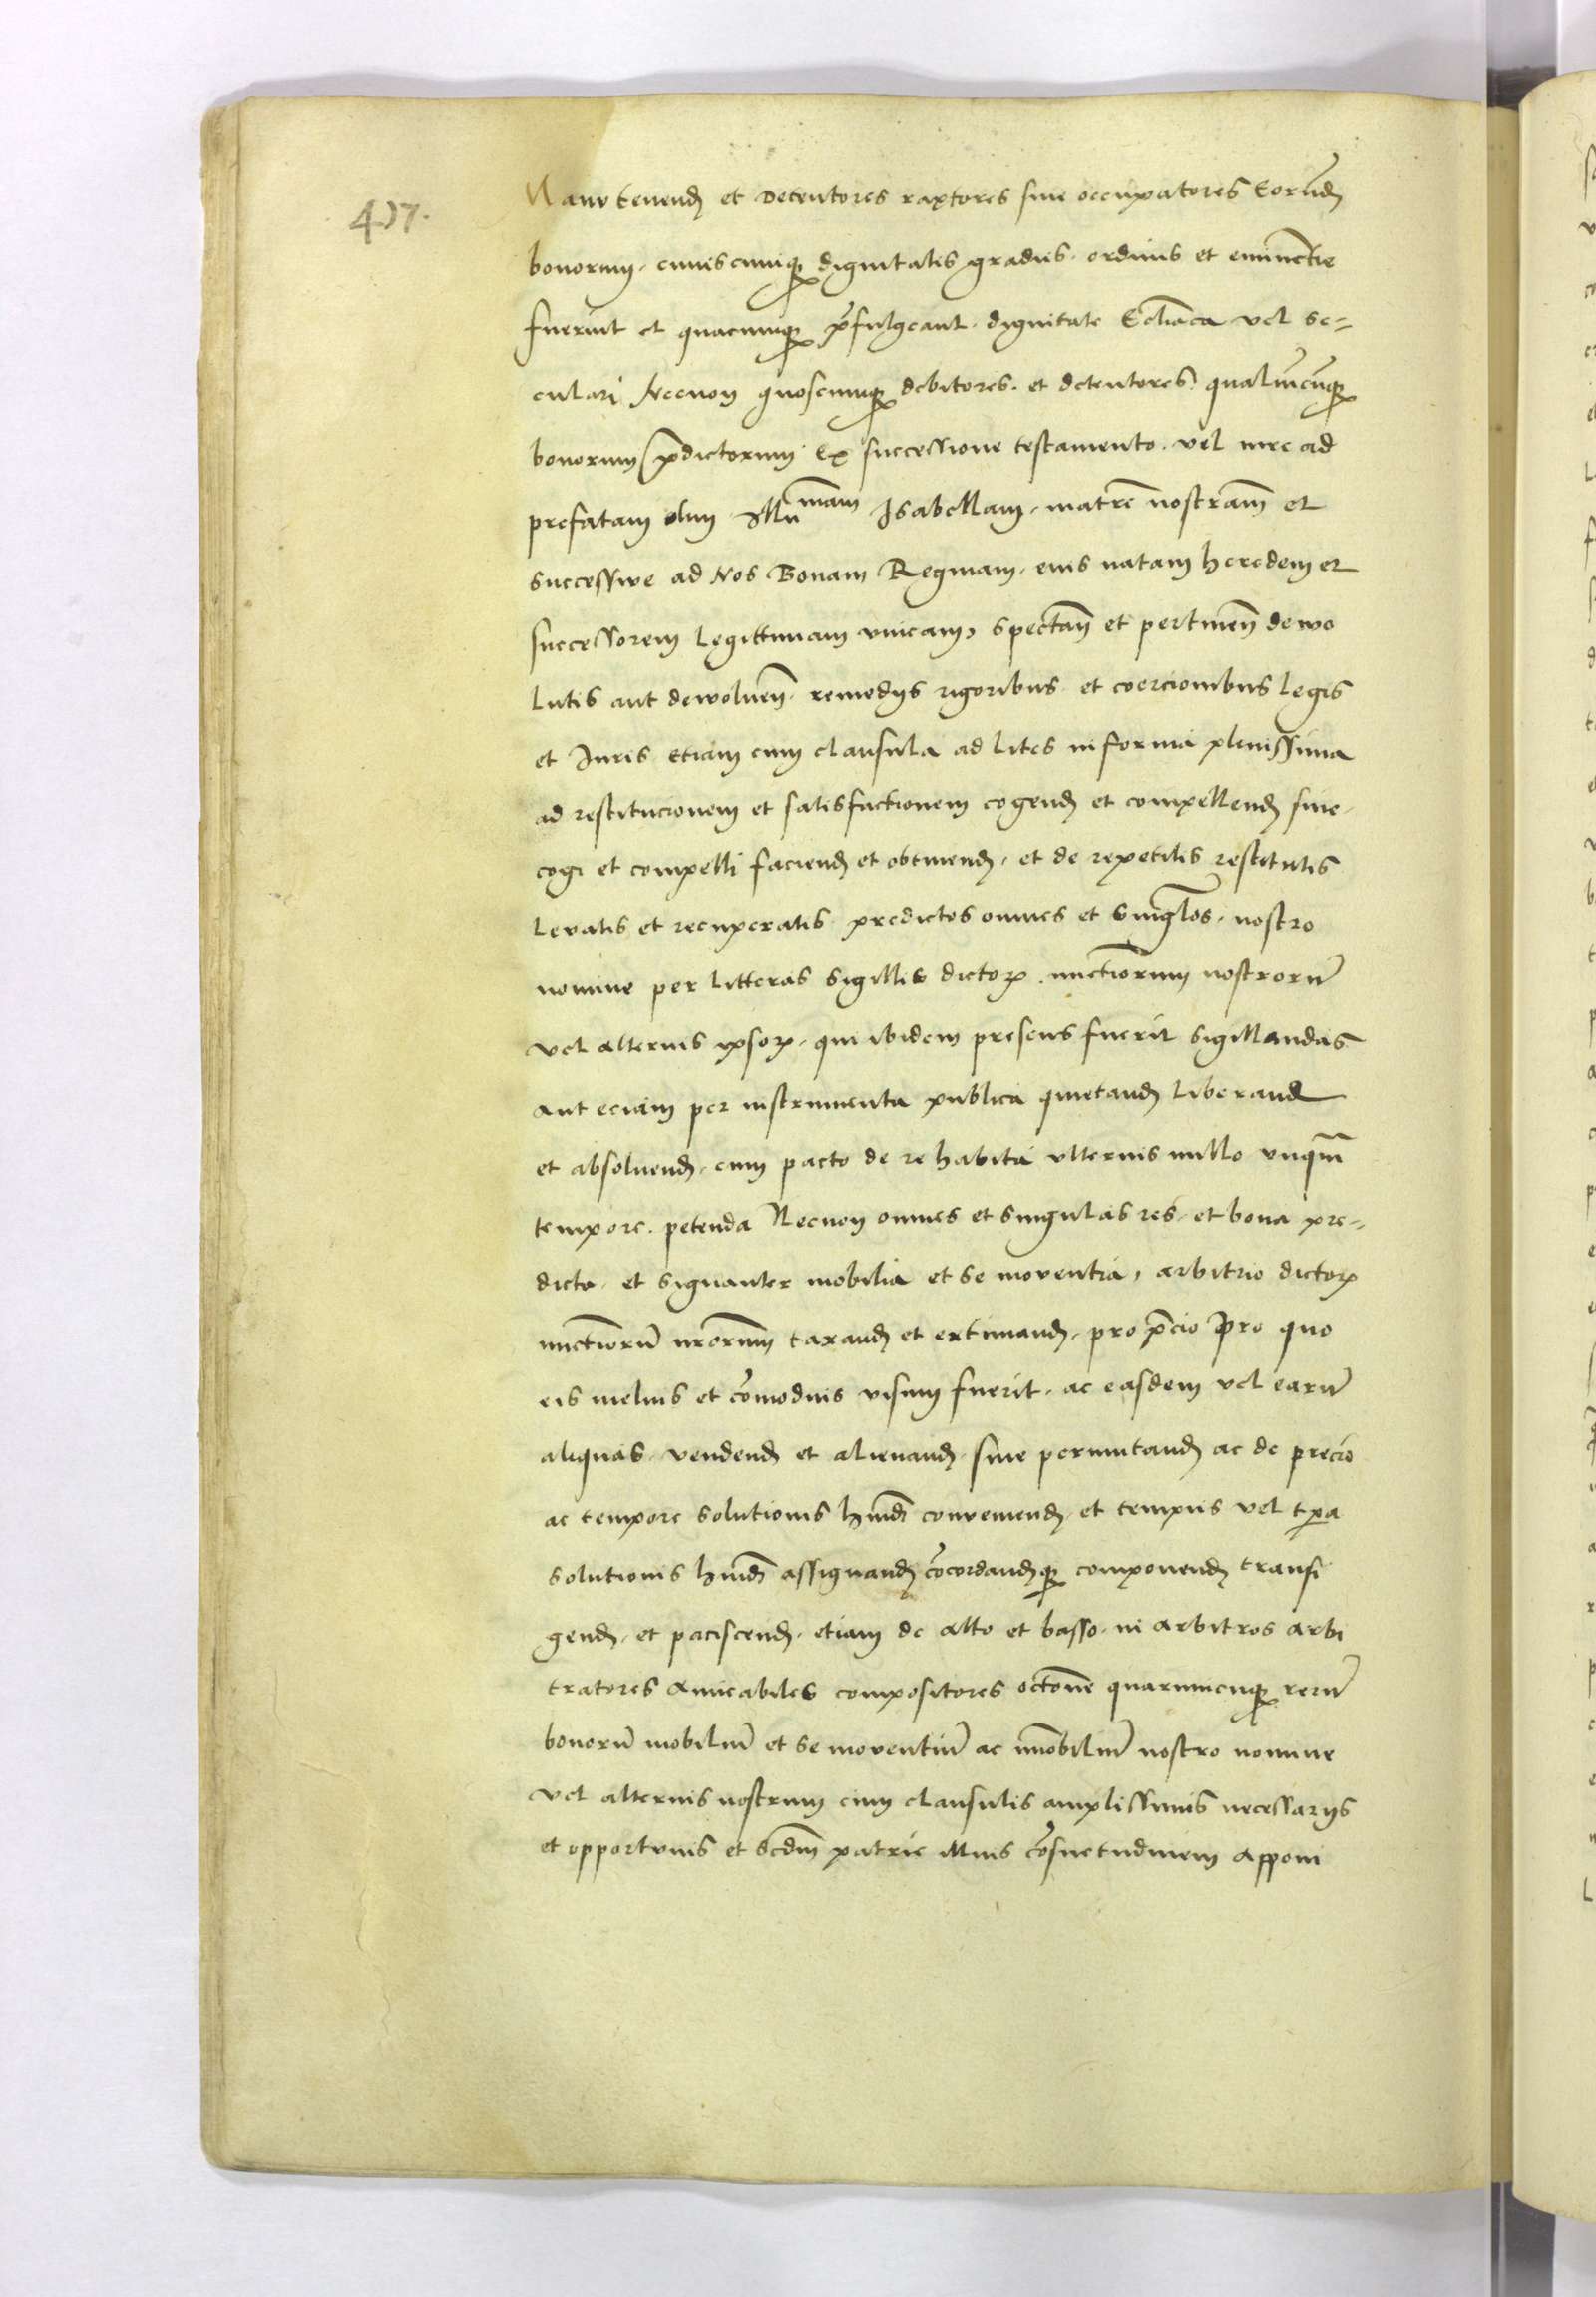 417.
Manutenend et Detentores raptores siue occupatores Eorūd
bonorum, cuiuscumque dignitatis gradus ordinis et eminētie
fuerint et quacumque p̄fulgeant dignitate Eccl̄iaca vel se=
culari Necnon quoscumque debitores et detentores qualiūcūque
bonorum p̄dictorum Ex successione testamento vel iure ad
prefatam olim Illu mam Isabellam, matrē nostram et
successiue ad Nos Bonam Reginam, eius natam heredem et
successorem legittimam vnicam, spectañ et pertineñ dewo
lutis aut dewolueñ remedijs rigoribus et coercionibus legis
et Juris Etiam cum clausula ad lites in forma plenissima
ad restitucionem et satisfactionem cogend et compellend siue
cogi et compelli faciend et obtinend, et de repetitis restitutis
levatis et recuperatis predictos omnes et singlos, nostro
nomine per litteras sigillis dictor nunctiorum nostrorū
vel alterius ipsor, qui ibidem presens fuerit sigillandas
aut eciam per instrumenta publica quietand liberand
et absoluend, cum pacto de re habita vlterius nullo vnqm̄
tempore petenda Necnon omnes et singulas res et bona pre=
dicta et signanter mobilia et se moventia, arbitrio dictor
nunctiorū nrorum taxand et extimand, pro p̄cio pro quo
eis melius et cōmodius visum fuerit, ac easdem vel earū
aliquas vendend et alienand siue permutand ac de precio
ac tempore solutionis hmōi conveniend et tempus vel tpa
solutionis hmōi assignand cōcordandque componend transi
gend et paciscend etiam de alto et basso in arbitros arbi
tratores amicabiles compositores octōne quarumcūque rerū
bonorū mobiliū et se moventiū ac īmobiliū nostro nomine
vel alterius nostrum cum clausulis amplissimis necessarijs
et opportunis et scdm patrie illius cōsuetudinem apponi